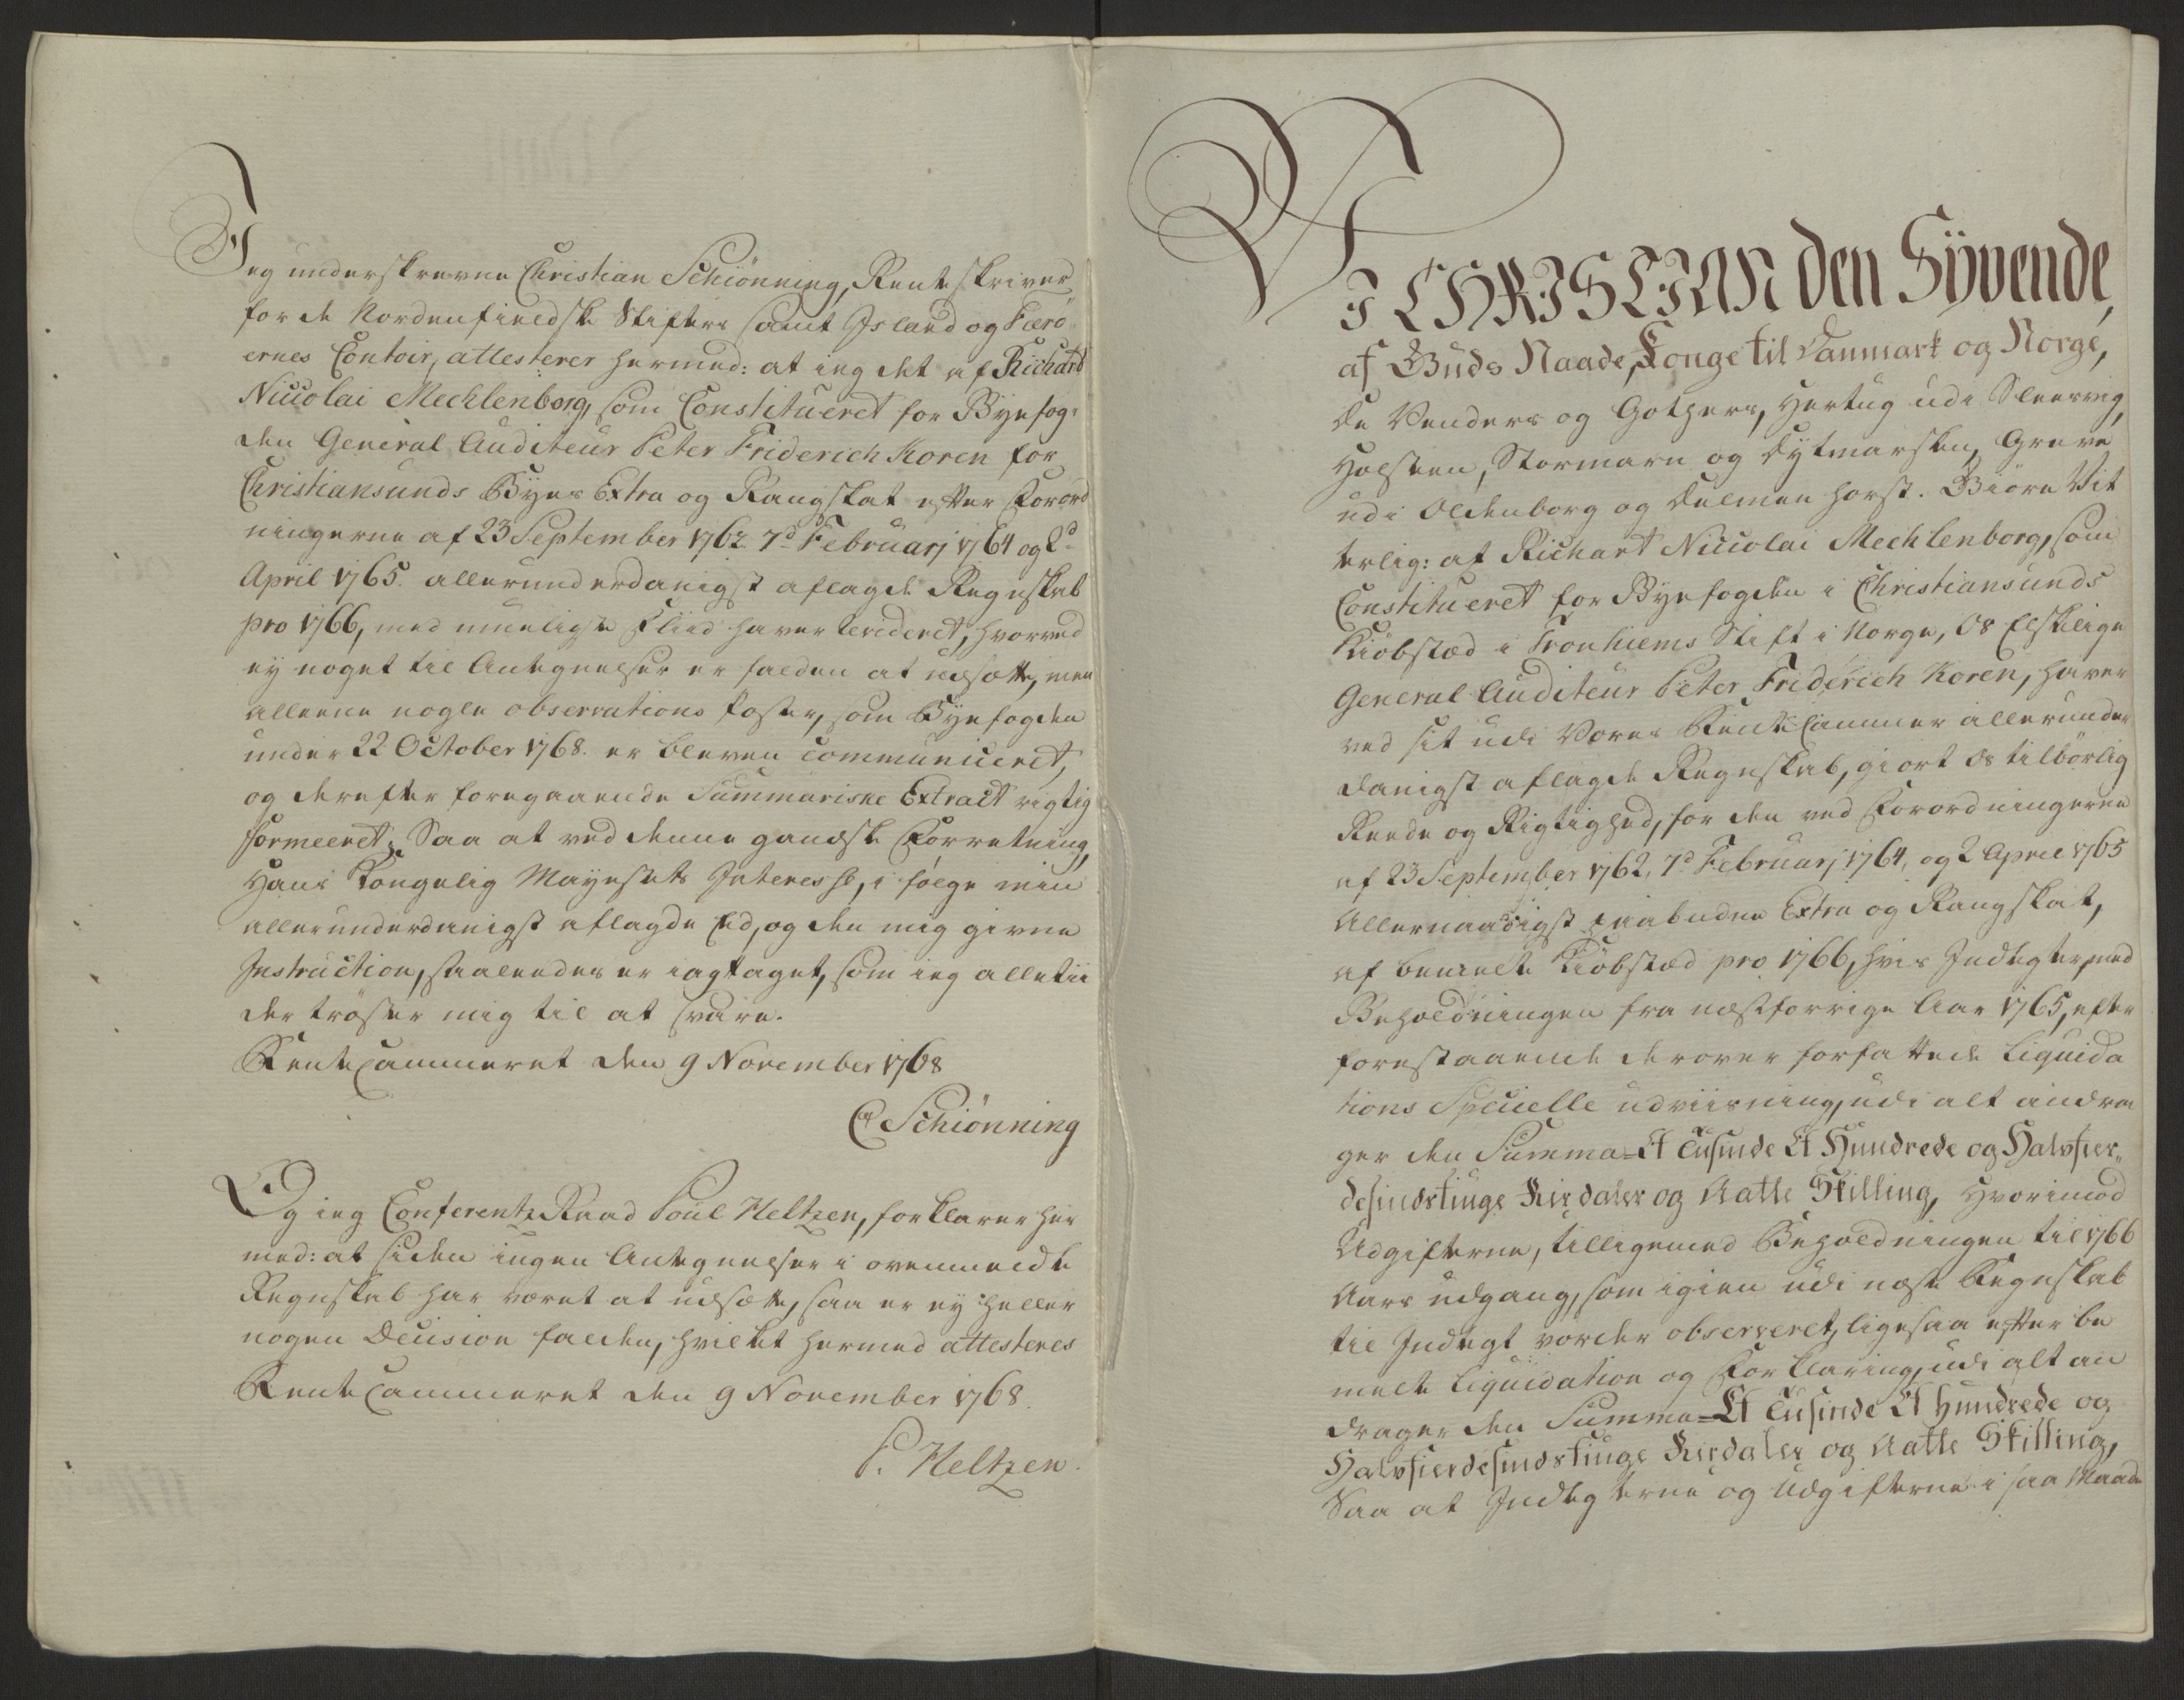 Jeg underskrevne Christian Schiönning, Renteskriver
for de Nordenfieldske Stifters samt Island og Færö
ernes Contoir, attesterer hermed: at ieg det af Richart
Niccolai Mechlenborg, som Constitueret for Byefog-
den General Auditeur Peter Friderich Koren for
Christiansunds Byes Extra og Rangskat efter Forord
ningerne af 23 September 1762. 7d Februarj 1764 og 2d
April 1765. allerunderdanigst aflagde Regnskab
pro 1766, med mueligste Fliid haver Revideret, hvorved
ey noget til Antegnelser er falden at udsætte, men
alleene nogle observations Poster, som Byefogden
under 22 October 1768. er bleven Communiceret,
og derefter foregaaende Summariske Extract rigtig
formeeret; Saa at ved denne gandske Forretning,
Hans Kongelig Mayestets Interesse, i følge min
allerunderdanigst aflagde Eed, og den mig givne
Instruction, saaledes er iagttaget, som ieg alletii
der tröster mig til at svare.
RenteCammeret den 9 November 1768
C Schiönning
Og ieg ConferentzRaad Poul Heltzen, forklarer her
med: at siden ingen Antegnelser i ovenmeldte
Regnskab har været at udsætte, saa er ey heller
nogen Decision falden, hvilket hermed attesteres
RenteCammeret den 9 November 1768.
P. Heltzen.
VI CHRISTIAN den Syvende,
af Guds Naade, Konge til Danmark og Norge,
de Venders og Gothers, Hertug udi Slesvig,
Holsteen, Stormarn og Dytmarsken, Greve
udi Oldenborg og Delmenhorst. Giöre Vit
terlig: at Richart Niccolai Mechlenborg, som
Constitueret for Byefogden i Christiansunds
Kiöbstæd i Tronhiems Stift i Norge, Os Elskelige
General Auditeur Peter Friderich Koren, haver
ved sit udi Vores RenteCammer allerunder
danigst aflagde Regnskab, giort Os tilbörlig
Reede og Rigtighed, for den ved Forordningerne
af 23 September 1762, 7d Februarj 1764, og 2 April 1765
Allernaadigst paabudne Extra og Rangskat,
af bemelte Kiöbstæd pro 1766, hvis Indtegter, med
Beholdningen fra næstforrige Aar 1765, efter
forestaaende derover forfattede Liquida
tions Specielle udviisning, udi alt andra
ger den Summa=Et Tusinde Et Hundrede og Halvfier„
desindstiuge Rixdaler og Aatte Skilling, Hvorimod
Udgifterne, tilligemed Beholdningen til 1766
Aars udgang, som igien udi næste Regnskab
til Indtegt vorder observeret, ligesaa efter be
melte Liquidation og Forklaring, udi alt an
drager den Summa=Et Tusinde Et Hundrede og
Halvfierdesindstiuge Rixdaler og Aatte Skilling,
Saa at Indtegterne og Udgifterne i saa Maade